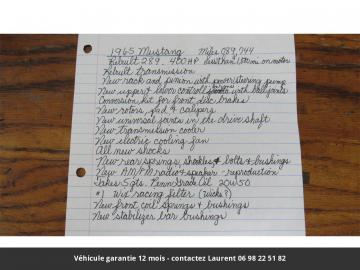 1965 Mustang Miles 089,744
Rebuilt 289 - 400 HP less than 1,500 mi on motor
Rebuilt transmission
New rack and pinion with power steering pump
New upper & lower control arms with ball joints
Conversion kit for front disc brakes
New rotors, pads & calipers
New universal joints in the drive shaft
New transmission cooler
New electric cooling fan
All new shocks
New rear springs, shackles & bolts & bushings
New AM/FM radio & speaker - reproduction
Takes 5 qts. Penn Grade Oil 20W50
#1 Wix racing filter
New front coil springs & bushings
New stabilizer bar bushings
Véhicule garantie 12 mois - contactez Laurent 06 98 22 51 82